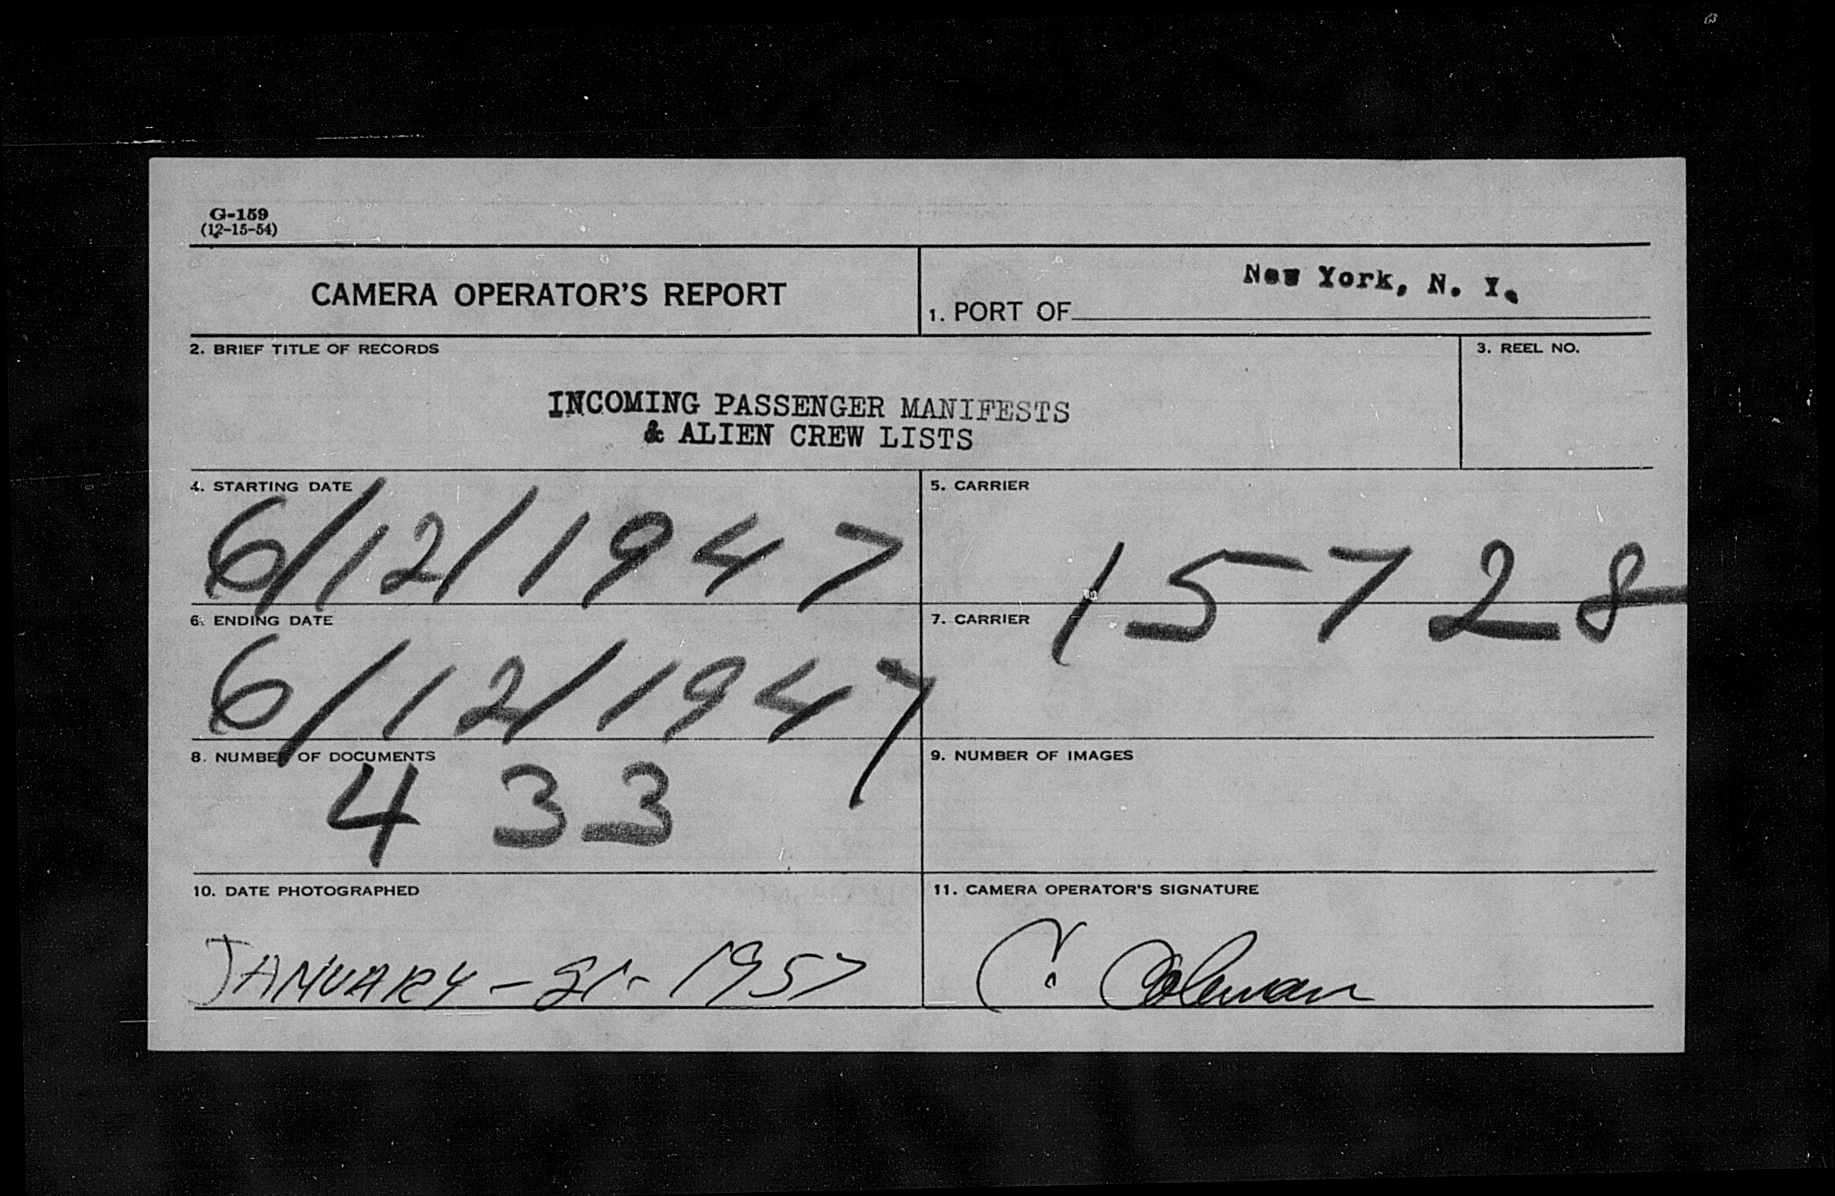 G-159
(12-15-54)
CAMERA OPERATOR'S REPORT
1. PORT OF New York, N. Y.
2. BRIEF TITLE OF RECORDS
3. REEL NO.
INCOMING PASSENGER MANIFESTS
& ALIEN CREW LISTS
4. STARTING DATE
6/12/1947
5. CARRIER
15728
6. ENDING DATE
6/12/1947
7. CARRIER
8. NUMBER OF DOCUMENTS
433
9. NUMBER OF IMAGES
10. DATE PHOTOGRAPHED
JANUARY - 21 - 1957
11. CAMERA OPERATOR'S SIGNATURE
C. Coleman